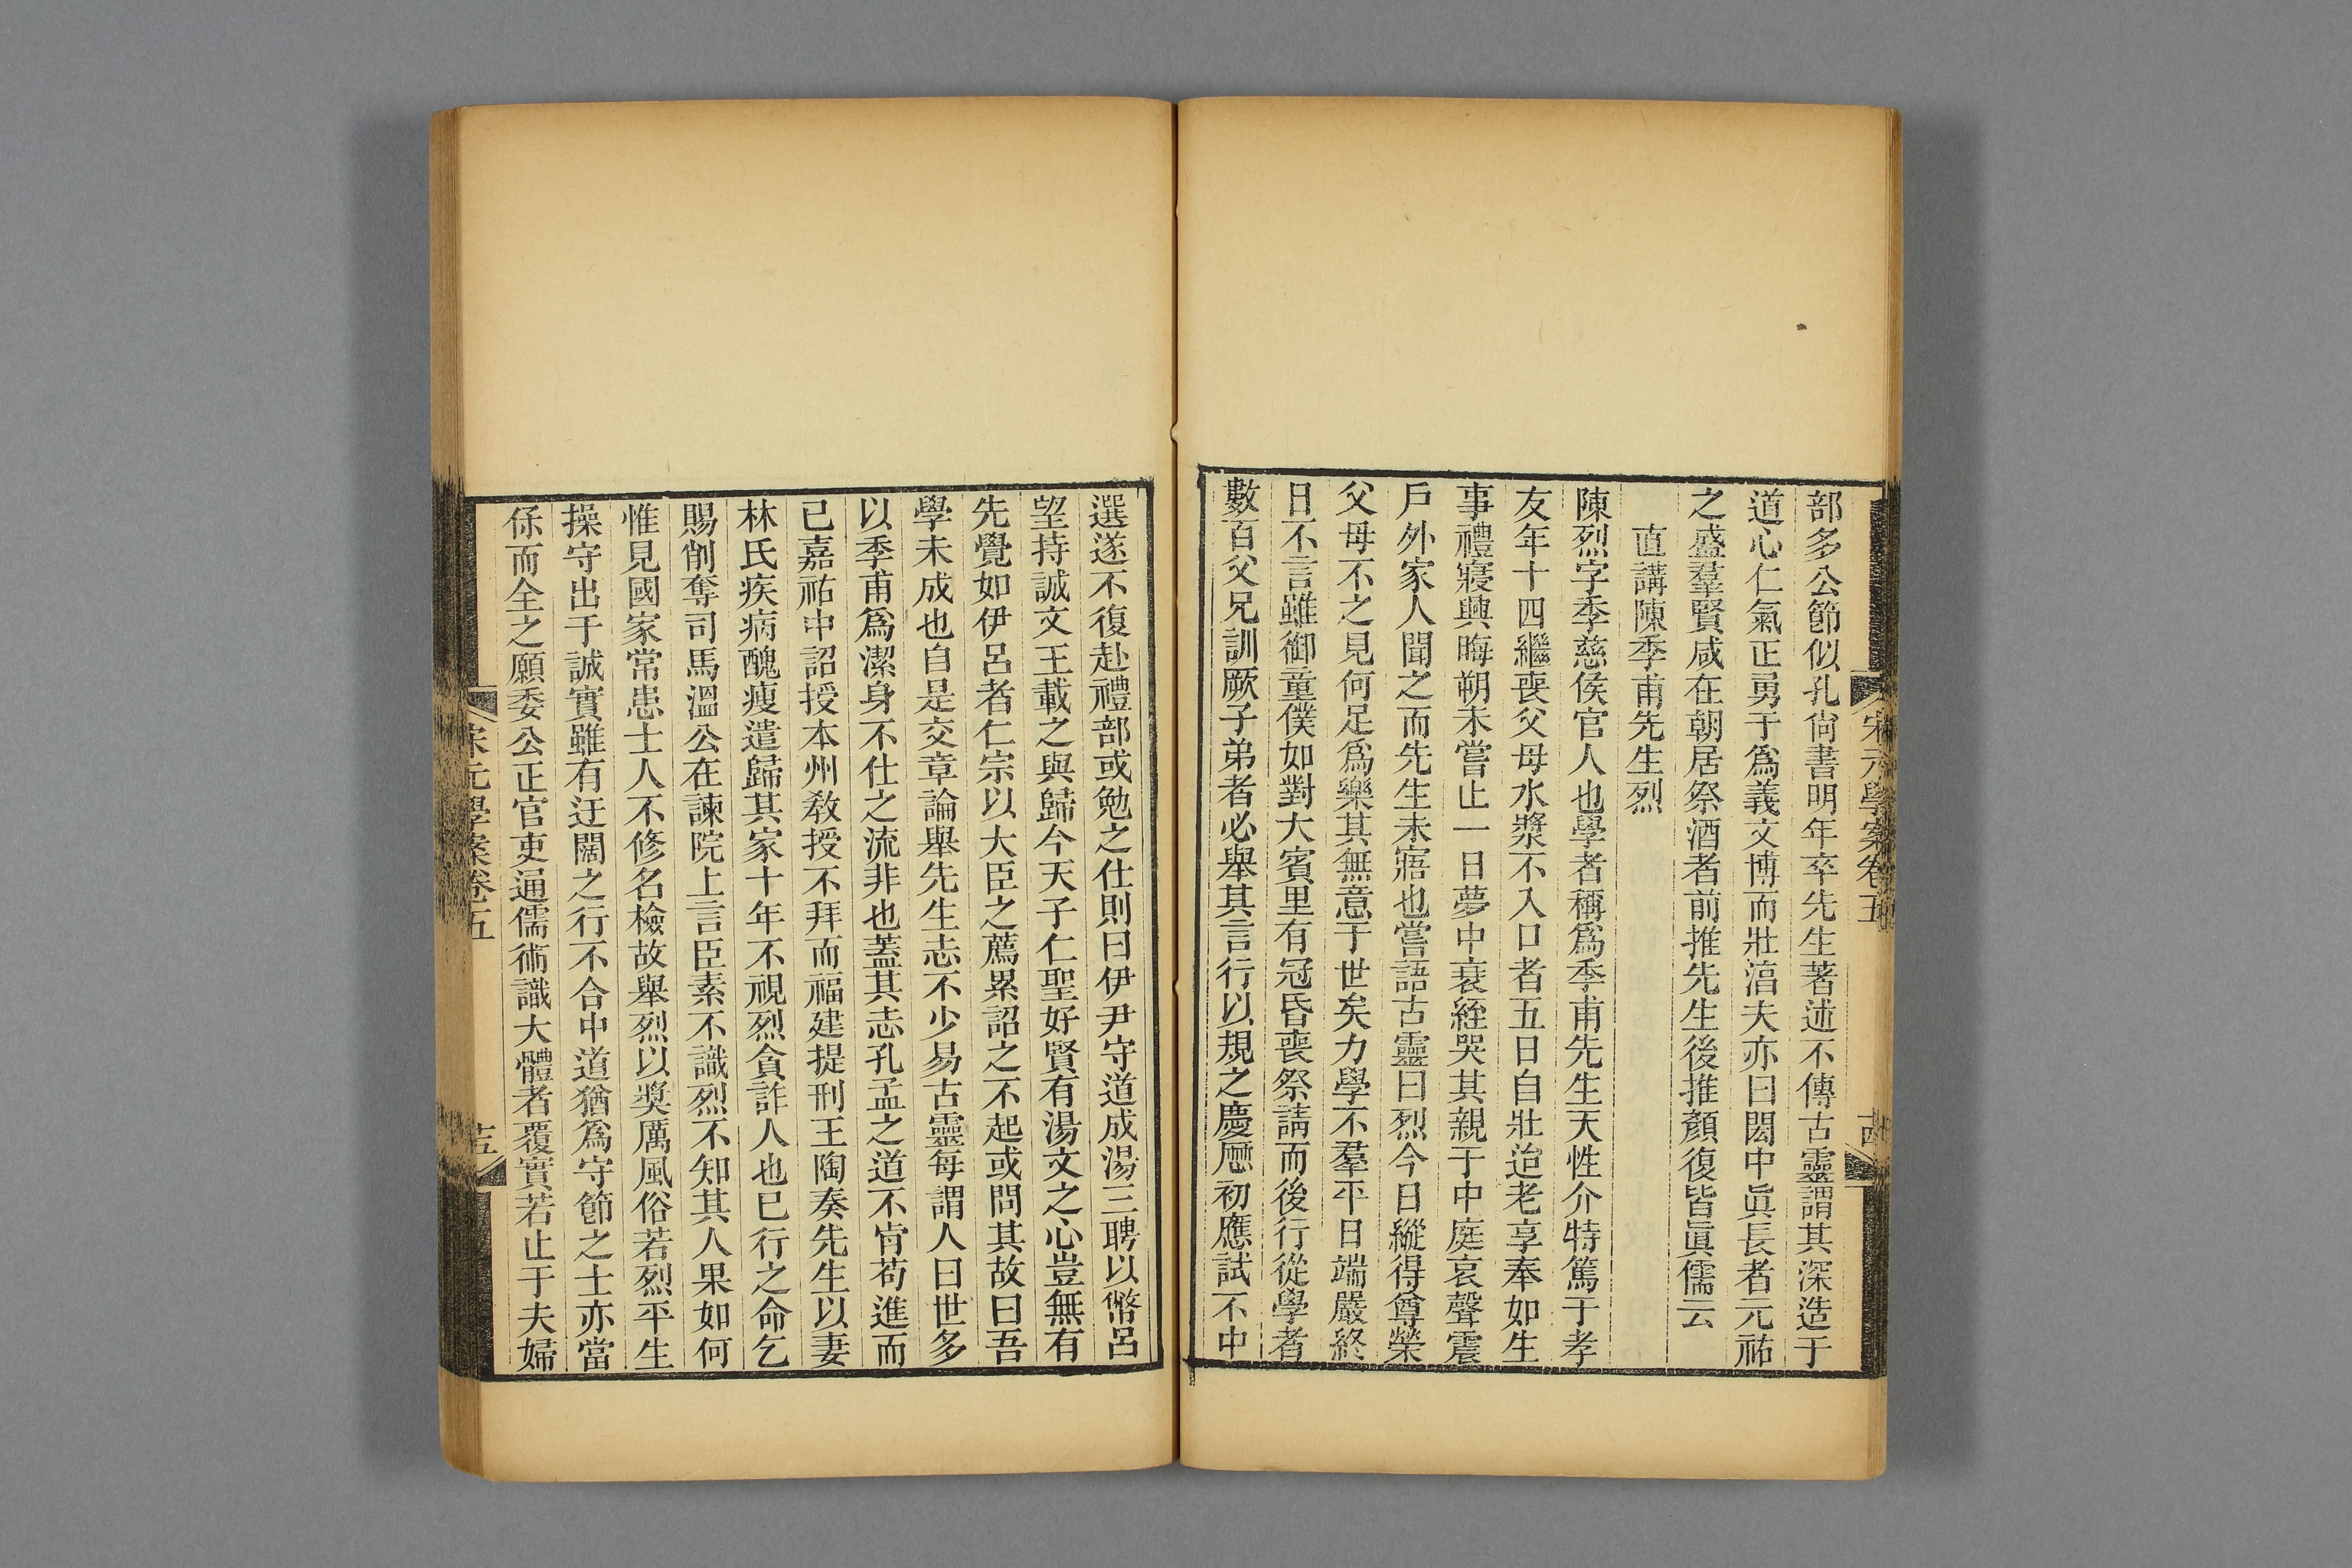 部多公節似孔尙書明年卒先生著述不傳古靈謂其深造于
道心仁氣正勇于爲義文博而壯湻夫亦曰閎中眞長者元祐
之盛羣賢咸在朝居祭酒者前推先生後推顏復皆眞儒云
直講陳季甫先生烈
陳烈字季慈侯官人也學者稱爲季甫先生天性介特篤于孝
友年十四繼喪父母水漿不入口者五日自壯迨老享奉如生
事禮寢興晦朔未嘗止一日夢中衰絰哭其親于中庭哀聲震
戶外家人聞之而先生未寤也嘗語古靈曰烈今日縱得尊榮
父母不之見何足爲樂其無意于世矣力學不羣平日端嚴終
日不言雖御童僕如對大賓里有冠昏喪祭請而後行從學者
數百父兄訓厥子弟者必舉其言行以規之慶厯初應試不中
宋元學案卷五
選遂不復赴禮部或勉之仕則曰伊尹守道成湯三聘以幣呂
望持誠文王載之與歸今天子仁聖好賢有湯文之心豈無有
先覺如伊呂者仁宗以大臣之薦累詔之不起或問其故曰吾
學未成也自是交章論舉先生志不少易古靈每謂人曰世多
以季甫爲潔身不仕之流非也蓋其志孔孟之道不肯苟進而
已嘉祐中詔授本州敎授不拜而福建提刑王陶奏先生以妻
林氏疾病醜瘦遣歸其家十年不視烈貪詐人也已行之命乞
賜削奪司馬溫公在諫院上言臣素不識烈不知其人果如何
惟見國家常患士人不修名檢故舉烈以奬厲風俗若烈平生
操守出于誠實雖有迂闊之行不合中道猶爲守節之士亦當
保而全之願委公正官吏通儒術識大體者覆實若止于夫婦
宋元學案卷五